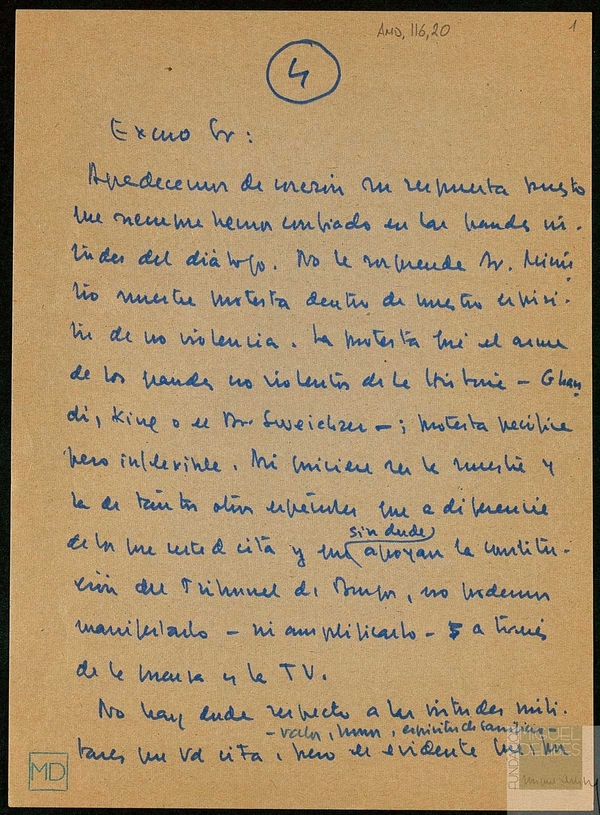 AMD, 116,20
1
4
Excmo Sr:
Agradecemos de corazón su respuesta puesto
que siempre hemos confiado en las grandes vir-
tudes del diálogo. No le sorprenda Sr. Minis
tro nuestra protesta dentro de nuestro espíri-
tu de no violencia. La protesta fué el arma
de los grandes no violentos de la Historia - Ghan
di, King o el Dr. Sweichzer -; protesta pacífica
pero inflexible. Mi quisiera ser la nuestra y
la de tantos otros españoles que a diferencia
sin duda
de los que usted cita y que apoyan la constitu-
ción del Tribunal de Burgos, no podemos
manifestarlo - ni amplificarlo - a través
de la prensa y la TV.
No hay duda respecto a las virtudes mili-
- valor, honor, espíritu de familia -
tares que Vd cita, pero es evidente que
MD
FUNDACIÓN
MIGUEL
DELIBES